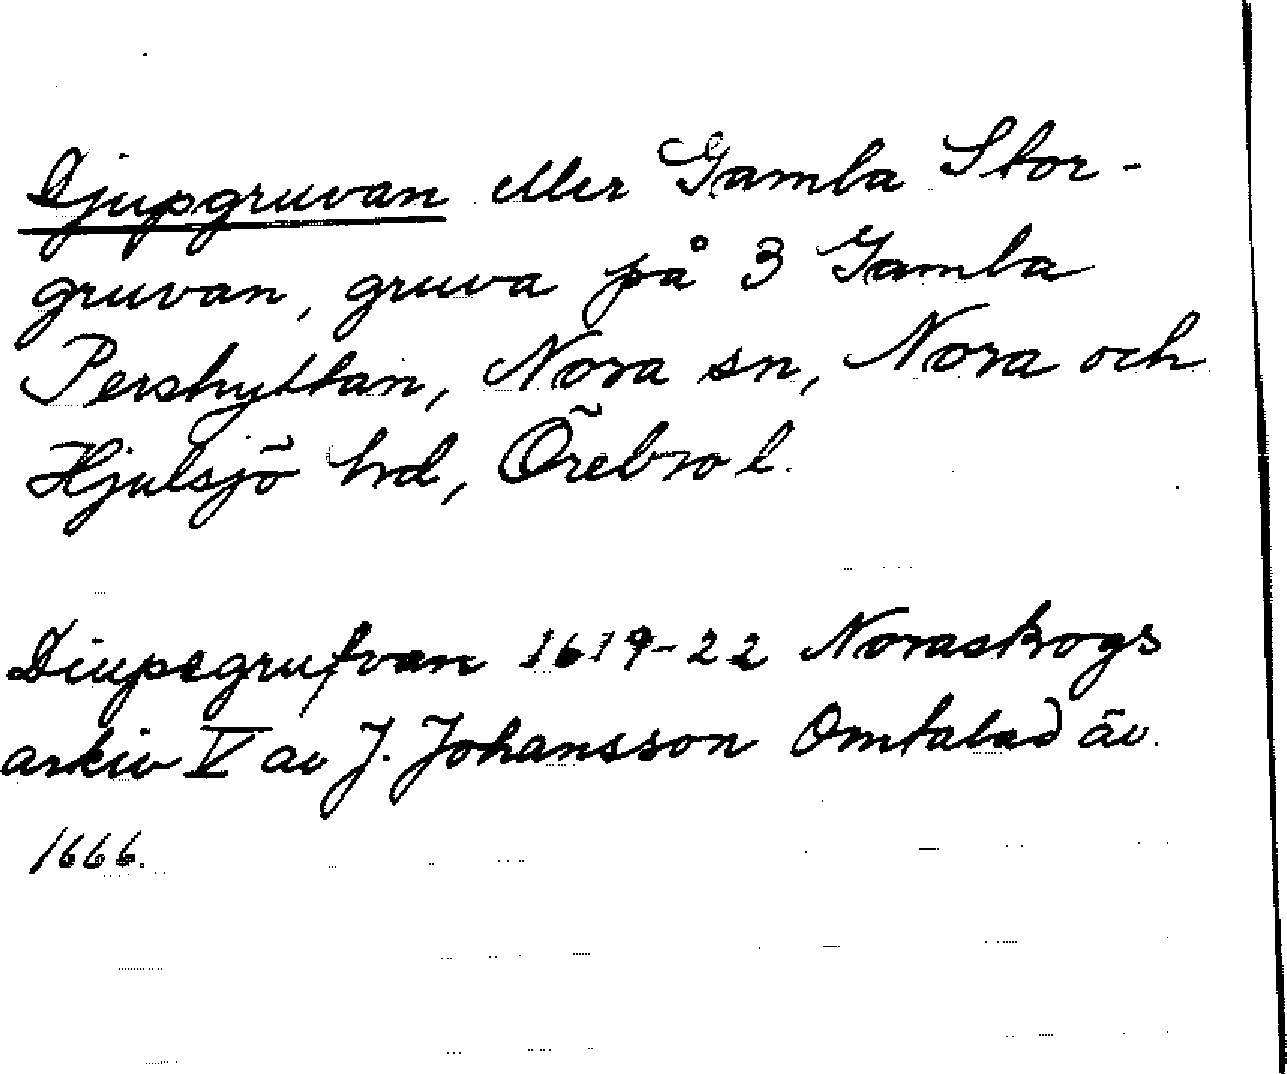 Djupgruvan eller Gamla Stor-
gruvan, gruva på 3 Gamla
Pershyttan, Nora sn, Nora och
Hjulsjö hrd, Örebro l.
Diupegrufvan 1619-22 Noraskogs
arkiv V av J. Johansson Omtalad äv.
1666.